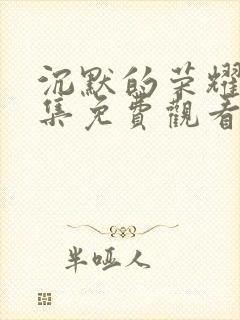 沉默的荣耀
集免費觀看
半哑人